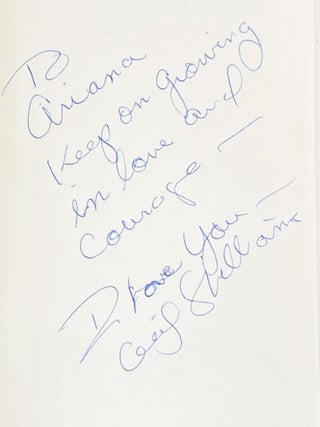 To
Ariana
Keep on growing
in love and
Courage —
I Love You —